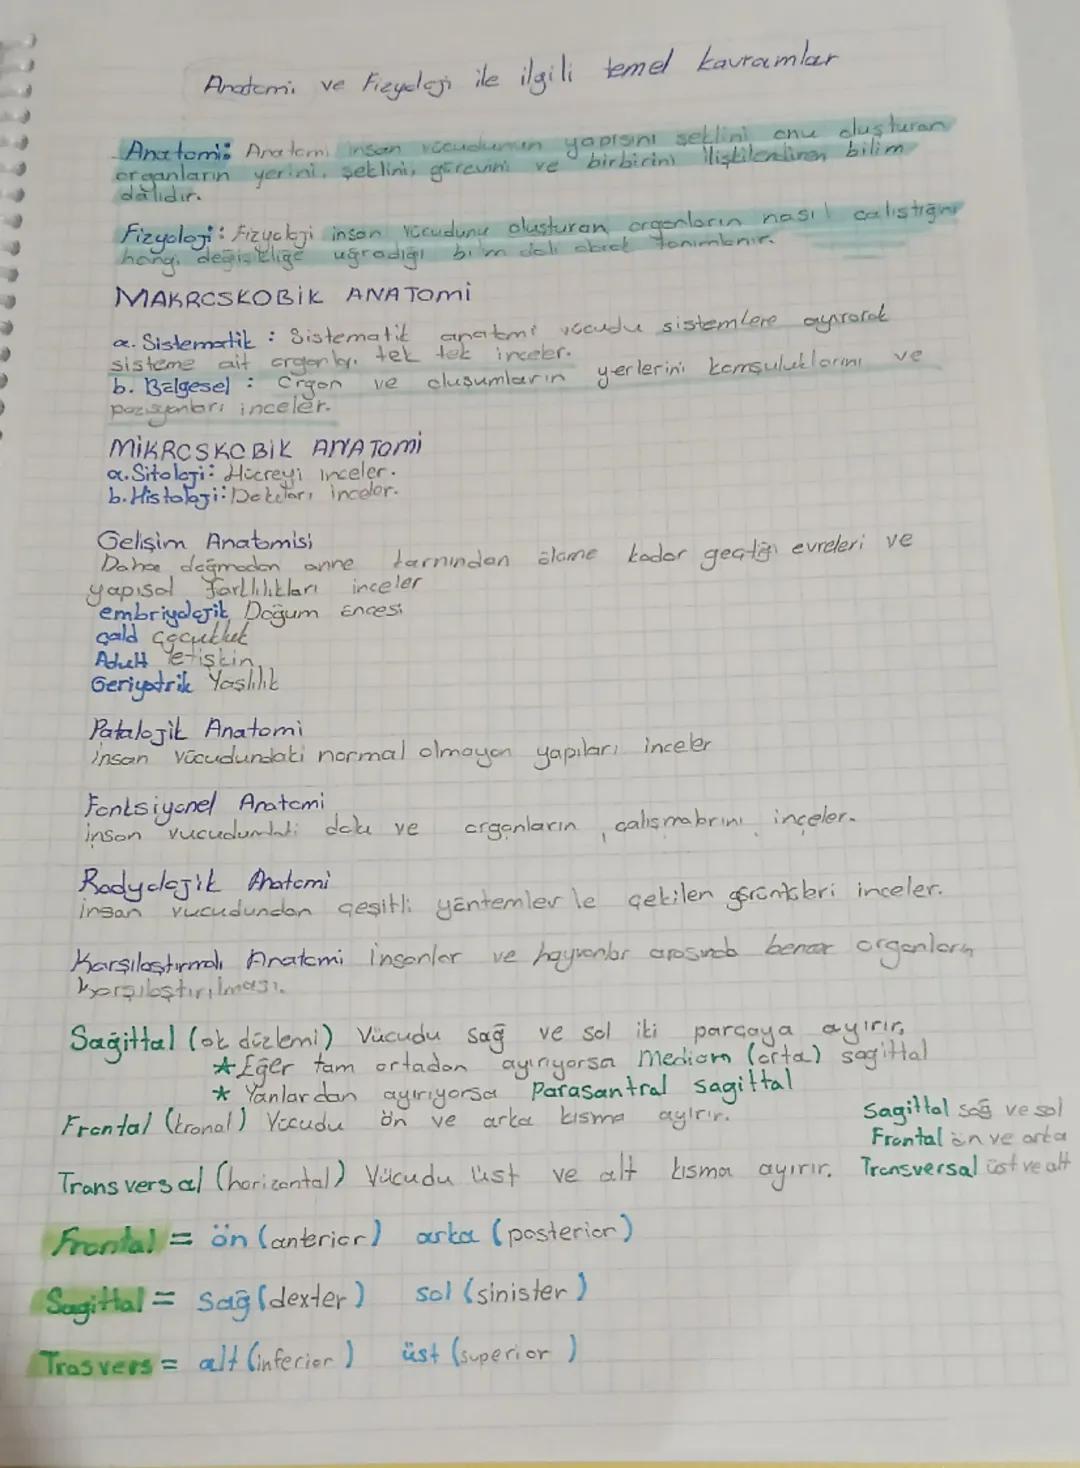 Anatomi ve Fizyoloji ile ilgili temel kavramlar
Anatomi: Anatomi insan vücudunun yapısını şeklini onu oluşturan
organların yerini, şeklini, görevini ve birbirini ilişkilendiren bilim
dalıdır.
Fizyoloji: Fizyoloji insan vücudunu oluşturan organların nasıl çalıştığını
hangi değişikliğe uğradığı bilim dalı olarak tanımlanır.
MAKROSKOBİK ANATOMİ
a. Sistematik : Sistematik anatomi vücudu sistemlere ayırarak
sisteme ait organları tek tek inceler.
b. Bölgesel : Organ ve oluşumların yerlerini komşuluklarını ve
pozisyonları inceler.
MİKROSKOBİK ANATOMİ
a. Sitoloji: Hücreyi inceler.
b. Histoloji: Dokuları inceler.
Gelişim Anatomisi
Daha doğmadan anne karnından ölüme kadar geçtiği evreleri ve
yapısal farklılıkları inceler
embriyolojik Doğum öncesi
çald çocukluk
Adult Yetişkin
Geriyatrik Yaşlılık
Patalojik Anatomi
insan vücudundaki normal olmayan yapıları inceler
Fonksiyonel Anatomi
insan vucudundaki doku ve organların çalışmalarını inceler.
Radyolojik Anatomi
insan vucudundan çeşitli yöntemler le çekilen görüntüleri inceler.
Karşılaştırmalı Anatomi İnsanlar ve hayvanlar arasında benzer organların
karşılaştırılması.
Sagittal (ok düzlemi) Vücudu sağ ve sol iki parçaya ayırır.
* Eğer tam ortadan ayırıyorsa Median (orta) sagittal
* Yanlardan ayırıyorsa Parasantral sagittal
Frontal (kronal) Vücudu ön ve arka kısma ayırır.
Sagittal sağ ve sol
Frontal ön ve arka
Transversal (horizontal) Vücudu üst ve alt kısma ayırır.
Transversal üst ve alt
Frontal = ön (anterior) arka (posterior)
Sagittal = sağ (dexter) sol (sinister)
Trasvers = alt (inferior) üst (superior)